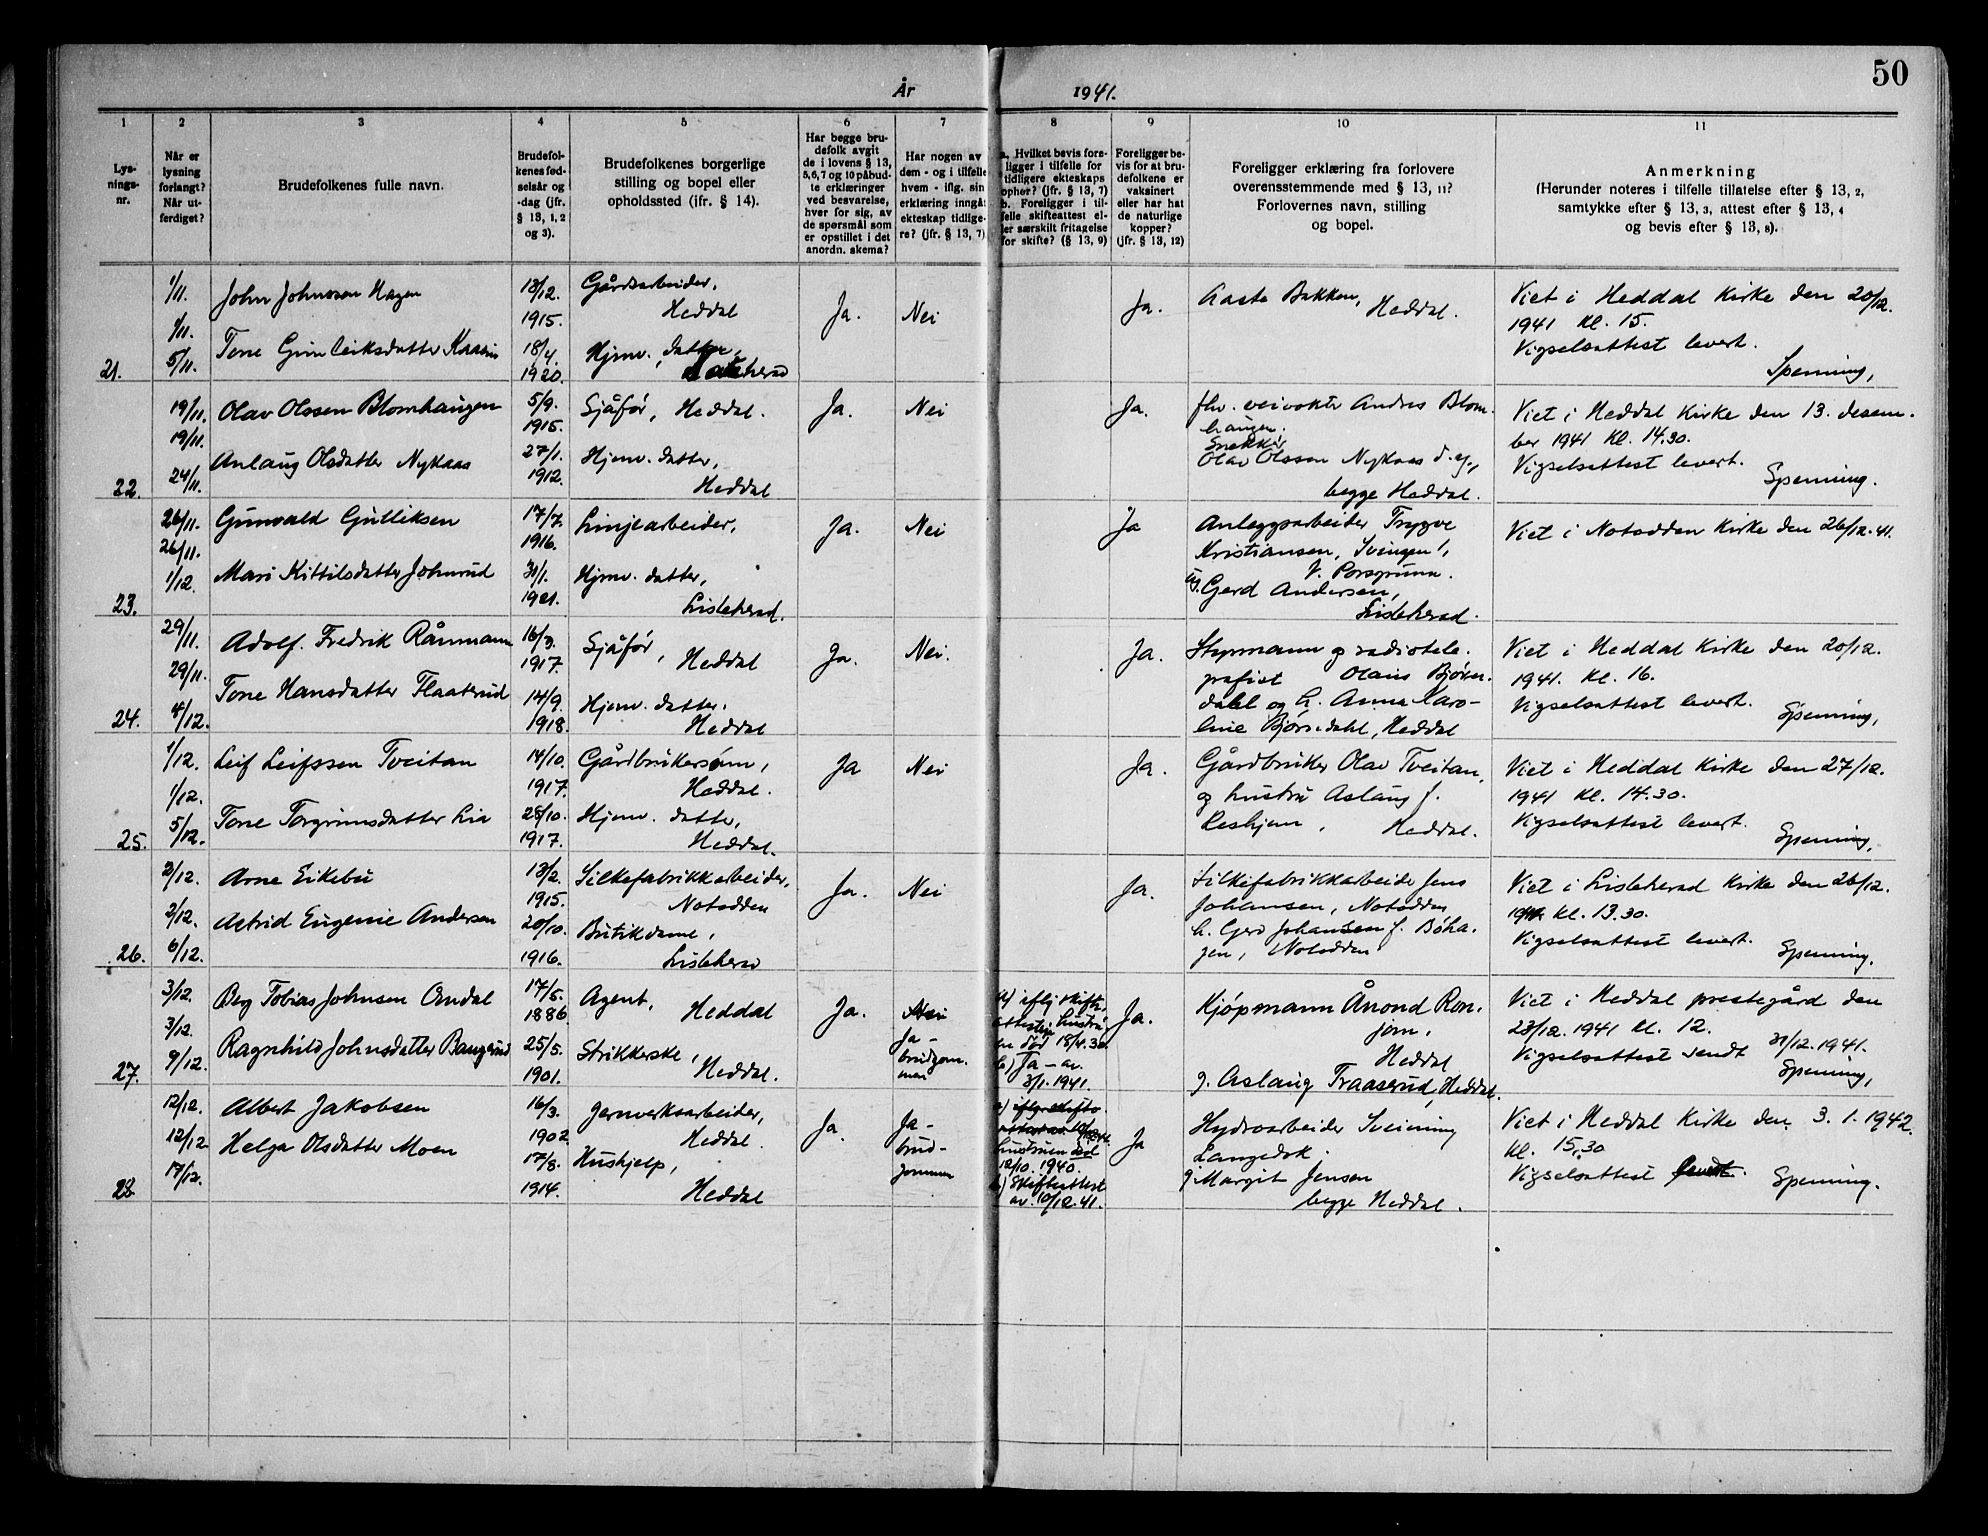 50
År 1941.
1 2 3 4 5 6 7 8 9 10 11
Lys-
nings-
nr.
Når er
lysning
forlangt?
Når ut-
ferdiget?
Brudefolkenes fulle navn.
Brudefol-
kenes fød-
selsår og
-dag (jfr.
§ 13, 1, 2
og 3).
Brudefolkenes borgerlige
stilling og bopel eller
opholdssted (jfr. § 14).
Har begge bru-
defolk avgit
de i lovens § 13,
5, 6, 7 og 10 påbud-
te erklæringer
ved besvarelse,
hver for sig, av
de spørsmål som
er opstillet i det
anordn. skema?
Har nogen av
dem - og i tilfelle
hvem - iflg. sin
erklæring inngåt
ekteskap tidlige-
re? (jfr. § 13, 7)
a. Hvilket bevis fore-
ligger i tilfelle for
tidligere ekteskaps
ophør? (jfr. § 13, 7)
b. Foreligger i til-
felle skifteattest el-
ler særskilt fritagelse
for skifte? (§ 13, 9)
Foreligger be-
vis for at bru-
defolkene er
vaksinert
eller har hat
de naturlige
kopper?
(jfr. § 13, 12)
Foreligger erklæring fra forlovere
overensstemmende med § 13, 11?
Forlovernes navn, stilling
og bopel.
Anmerkning
(Herunder noteres i tilfelle tillatelse efter § 13, 2,
samtykke efter § 13, 3, attest efter § 13, 4
og bevis efter § 13, 8).
21.
1/11.
1/11.
5/11.
John Johnssen Hagen
Tone Gunleiksdatter Kaasin
13/12.
1915.
18/4.
1920.
Gårdsarbeider,
Heddal
Hjemv. datter,
Lisleherad
Ja.
Nei
Ja.
Aasta Bakken, Heddal.
Viet i Heddal Kirke den 20/12.
1941 kl. 15.
Vigselsattest levert.
Spenning,
22.
19/11.
19/11.
24/11.
Olav Olssen Blomhaugen
Anlaug Olsdatter Nykaas
5/9.
1915.
27/1.
1912.
Sjåfør, Heddal.
Hjemv. datter,
Heddal
Ja.
Nei
Ja.
fhv. veivokter Andres Blom-
haugen.
Snekker
Olav Olssen Nykaas d. e.,
begge Heddal.
Viet i Heddal Kirke den 13. desem-
ber 1941 kl. 14.30.
Vigselsattest levert.
Spenning.
23.
26/11.
26/11.
1/12.
Gunvald Gulliksen
Mari Kittilsdatter Johnrud
17/7.
1916.
31/1.
1921.
Linjearbeider,
Hjemv. datter,
Lisleherad.
Ja.
Nei
Ja
Anleggsarbeider Trygve
Kristiansen, Svingen,
V. Porsgrunn.
og Gerd Andersen,
Lisleherad.
Viet i Notodden Kirke den 26/12.41.
24.
29/11.
29/11.
4/12.
Adolf. Fredrik Råmmann
Tone Hansdatter Flaaterud
16/3.
1917.
14/9.
1918.
Sjåfør, Heddal
Hjemv. datter.
Heddal
Ja.
Nei.
Ja.
Styrmann og radiotele-
grafist Olaus Bjørn-
dahl og h. Anna Karo-
line Bjørndahl, Heddal
Viet i Heddal Kirke den 20/12.
1941. kl. 16.
Vigselsattest levert.
Spenning,
25.
1/12.
1/12.
5/12.
Leif Leifssen Tveitan
Tone Torgrimsdatter Lia
14/10.
1917.
28/10.
1917.
Gårdbrukersønn,
Heddal.
Hjemv. datter,
Heddal.
Ja
Nei
Ja.
Gårdbruker Olav Tveitan,
og hustru Aslaug f.
Reshjem, Heddal.
Viet i Heddal Kirke den 27/12.
1941 kl. 14.30.
Vigselsattest levert.
Spenning,
26.
2/12.
2/12.
6/12.
Arne Eikebu
Astrid Eugenie Andersen
13/2.
1915.
20/10.
1916.
Silkefabrikkarbeider,
Notodden
Butikdame,
Lisleherad
Ja.
Nei
Ja.
Silkefabrikkarbeider Jens
Johansen, Notodden
h. Gerd Johansen f. Bøha-
gen, Notodden
Viet i Lisleherad Kirke den 26/12.
1941 kl. 13.30.
Vigselsattest levert.
Spenning,
27.
3/12.
3/12.
9/12.
Berg Tobias Johnsen Omdal
Ragnhild Johnsdatter Baugerud
17/5.
1886.
25/5.
1901.
Agent,
Heddal
Strikkerske,
Heddal.
Ja.
Nei
Ja -
brudgom-
men
a) iflg. skifte-
attest hustru-
en død 18/4.30.
b) Ja - av
3/1. 1941.
Ja.
Kjøpmann Ånond Ron-
jom,
Heddal
og Aslaug Traaserud, Heddal.
Viet i Heddal prestegård den
23/12. 1941 kl. 12.
Vigselsattest sendt 31/12. 1941.
Spenning,
28.
12/12.
12/12.
17/12.
Albert Jakobsen
Helga Olsdatter Moen
16/3.
1902.
17/8.
1914.
Jernverksarbeider,
Heddal.
Hushjelp,
Heddal
Ja.
Ja -
brud-
gommen
hustruen død
12/10. 1940.
b) Skifteattest
av 10/12.41.
Ja
Hydroarbeider Sveinung
Langedok.
og Margit Jensen
begge Heddal.
Viet i Heddal Kirke den 3.1.1942.
kl. 15,30
Vigselsattest levert.
Spenning.